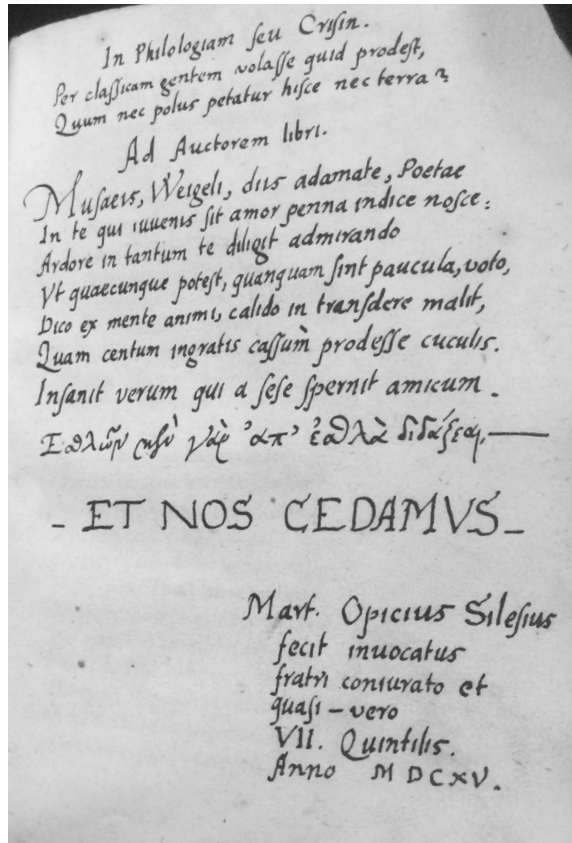 In Philologiam seu Crisin.
Per classicam gentem volasse quid prodest,
Quum nec polus petatur hisce nec terra?
Ad Auctorem libri.
Musaeis, Weigeli, diis adamate, Poetae
In te qui iuvenis sit amor penna indice nosce:
Ardore in tantum te diligit admirando
Vt quaecunque potest, quanquam sint paucula, voto,
Dico ex mente animi, calido in transdere malit,
Quam centum ingratis cassùm prodesse cuculis.
Insanit verum qui a sese spernit amicum.
γὰρ ἀπ' ἐσθλὰ διδάξεαι,—
- ET NOS CEDAMVS -
Mart. Opicius Silesius
fecit inuocatus
fratri coniurato et
quasi - vero
VII. Quintilis.
Anno M DCXV.